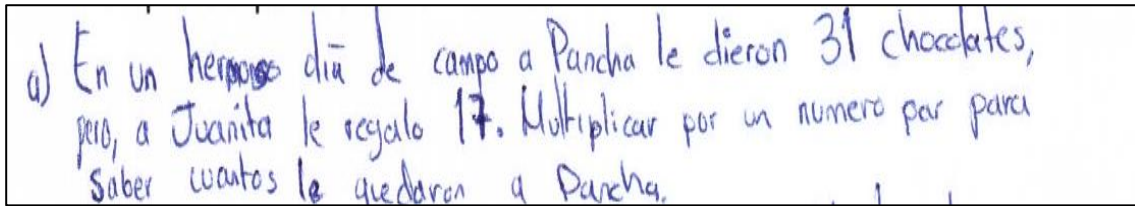 a) En un hermoso día de campo a Pancha le dieron 31 chocolates,
pero, a Juanita le regalo 17. Multiplicar por un numero par para
saber cuantos le quedaron a Pancha.